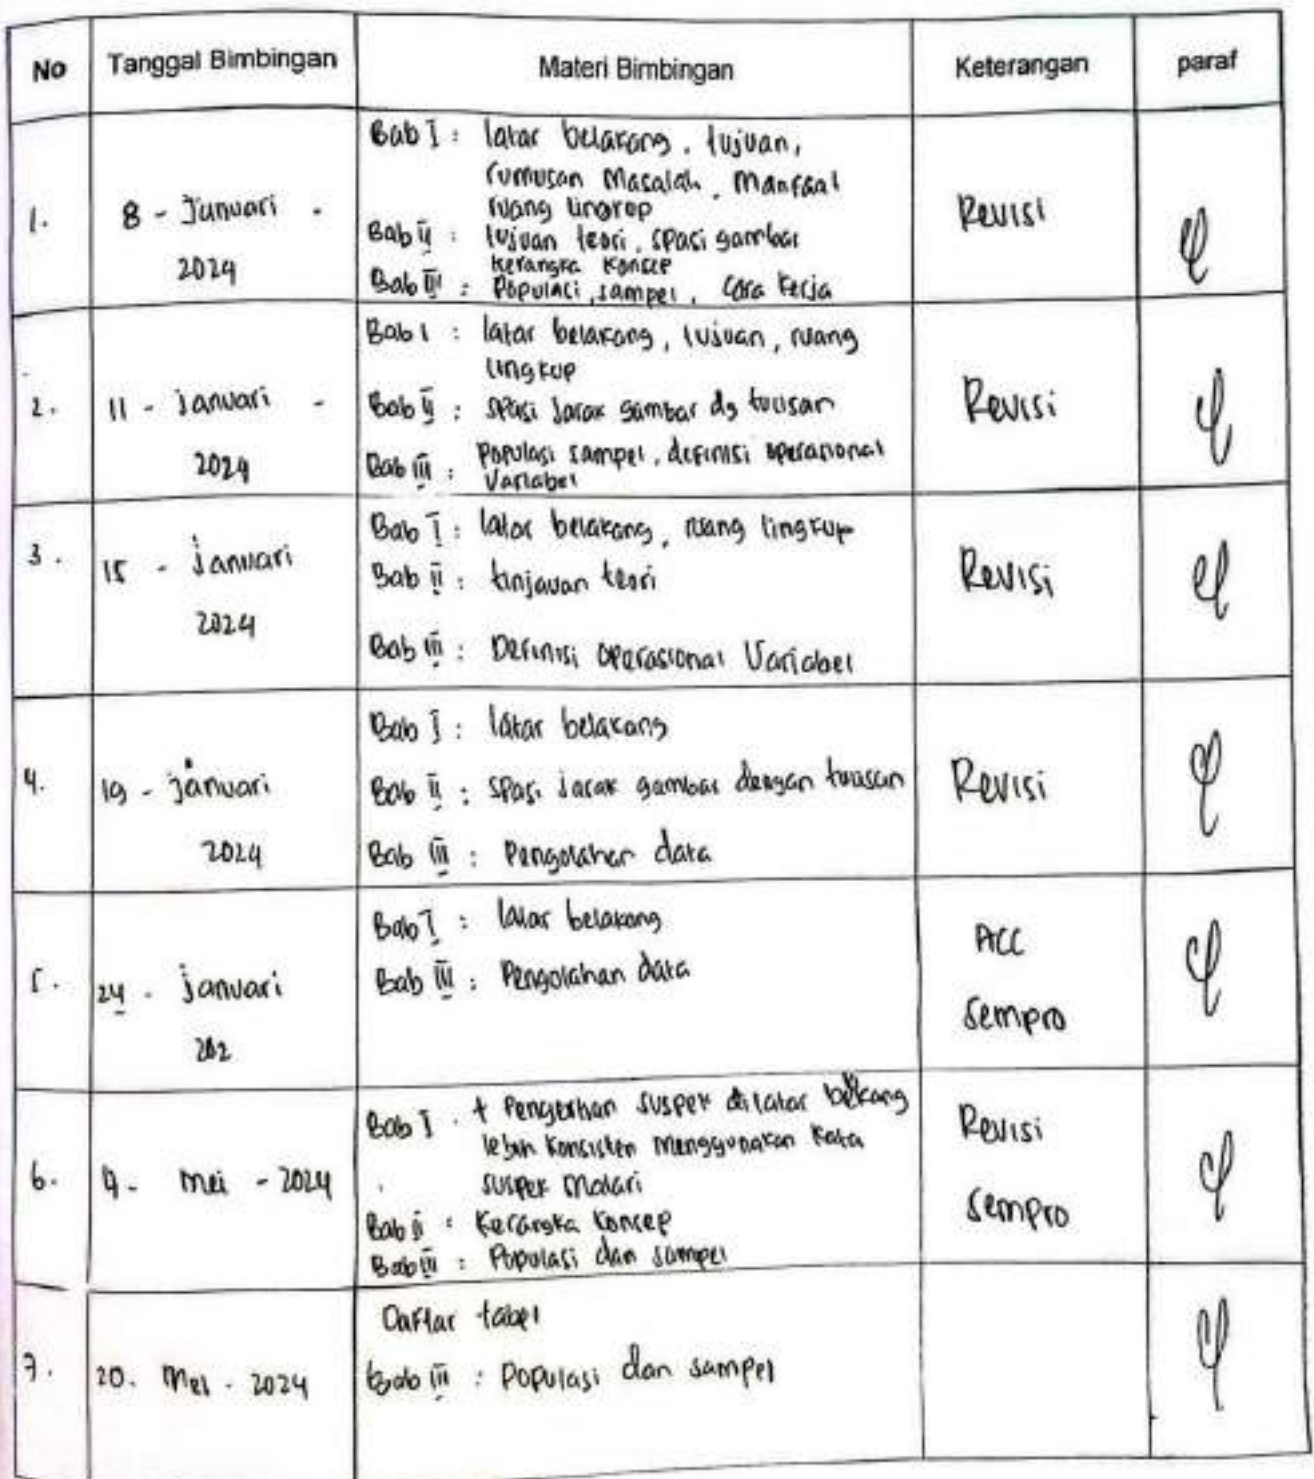 No Tanggal Bimbingan Materi Bimbingan Keterangan paraf
1. 8 - Januari - 2024
Bab I : latar belakang, tujuan,
rumusan Masalah, Manfaat
ruang lingkup
Bab II : tujuan teori, spasi gambar
kerangka konsep
Bab III : Populasi, sampel, cara kerja
Revisi
2. 11 - Januari - 2024
Bab I : latar belakang, tujuan, ruang
lingkup
Bab II : spasi jarak gambar dg tulisan
Bab III : Populasi sampel, definisi operasional
Variabel
Revisi
3. 15 - Januari 2024
Bab I : latar belakang, ruang lingkup
Bab II : tinjauan teori
Bab III : Definisi operasional Variabel
Revisi
4. 19 - Januari 2024
Bab I : latar belakang
Bab II : spasi jarak gambar dengan tulisan
Bab III : Pengolahan data
Revisi
5. 24 - Januari 202
Bab I : latar belakang
Bab III : Pengolahan data
ACC
Sempro
6. Mei - 2024
Bab I . + suspek dilatar belakang
lebih konsisten menggunakan kata
suspek Malari
Bab II : Kerangka konsep
Bab III : Populasi dan sampel
Revisi
Sempro
7. 20. Mei - 2024
Daftar tabel
Bab III : Populasi dan sampel